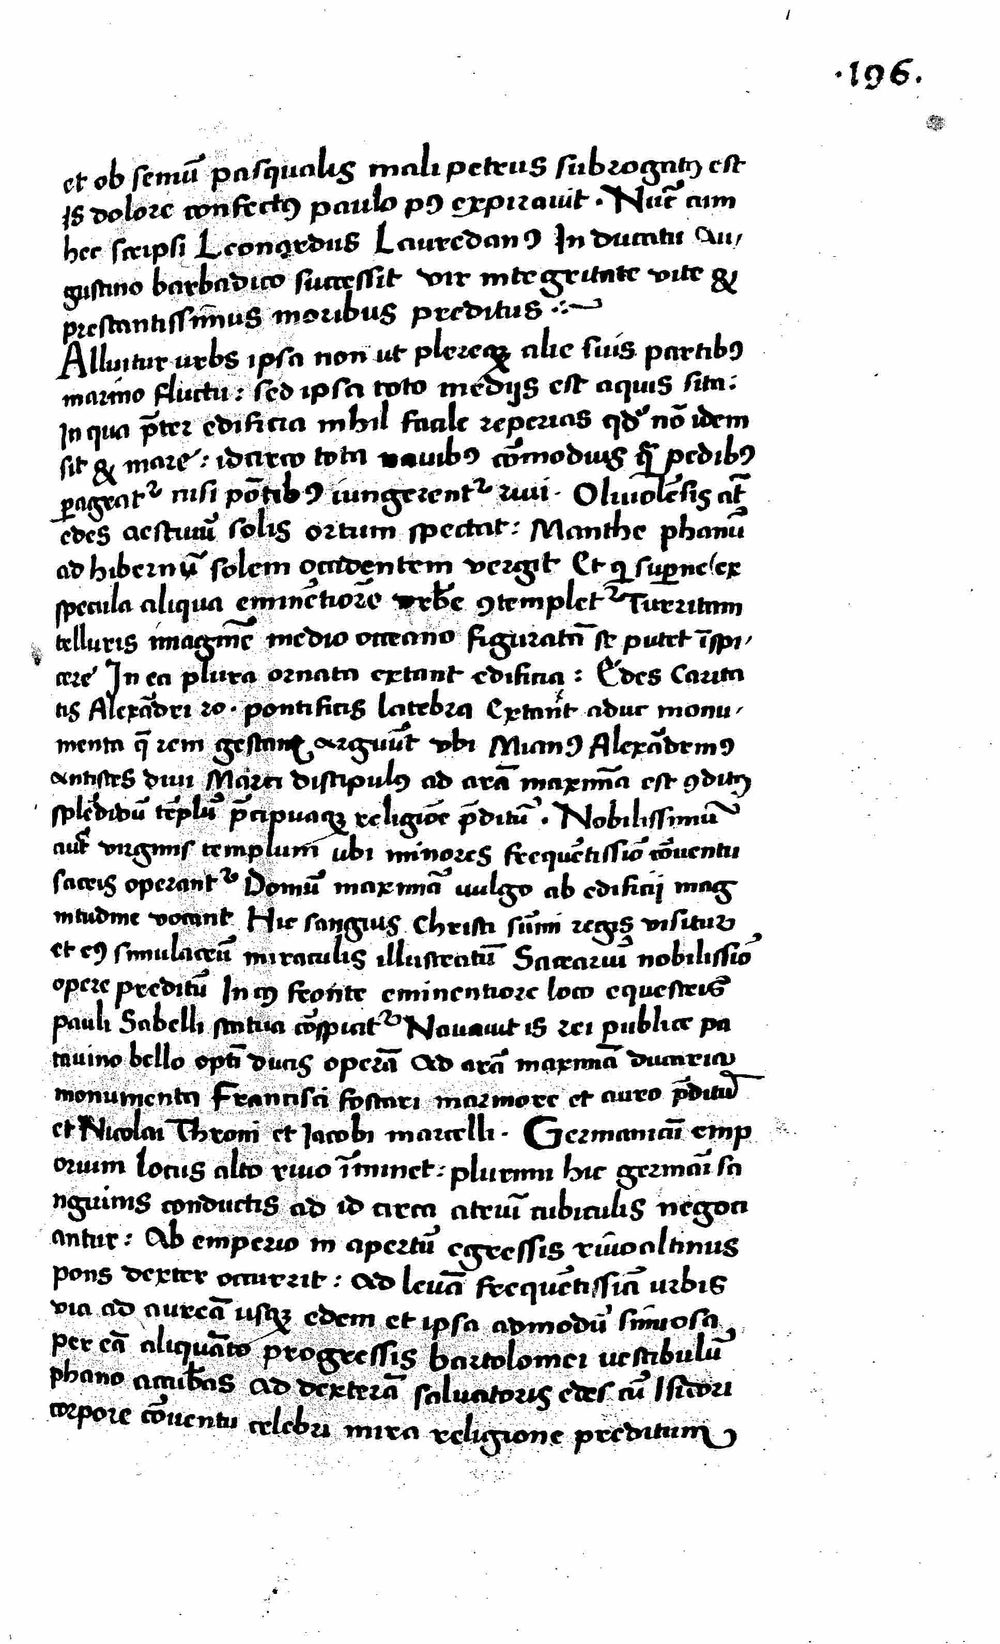 ·196.
et ob seniũ pasqualis mali petrus subrogatꝰ est
is dolore confectꝰ paulo pꝰ expirauit · Nũc cum
hec scripsi Leonardus Lauredanꝰ In ducatu Au,
gustino barbadico successit vir integritate vite &
prestantissimus moribus preditus ·:~
Alluitur urbs ipsa non ut pleræqꝫ alie suis partibꝰ
marino fluctu: sed ipsa toto medijs est aquis sita:
In qua p̃ter edificia nihil facile reperias qđ nõ idem
sit & mare: idcirco tota nauibꝰ cõmodius qᷓ pedibꝰ
ꝑagratᷣ nisi põtibꝰ iungerentᷣ riui · Oliuolẽsis at̃
edes aestiuũ solis ortum spectat: Manthe phanũ
ad hibernũ solem occidentem vergit Et q suꝑne ex
specula aliqua eminẽtiorẽ vrbẽ ꝯtempletᷣ Turritam
telluris imaginẽ medio occeano figuratã se putet ĩspi,
cere In ea plura ornata extant edificia: Edes Carita
tis Alexãdri ro · pontificis latebra Extant aduc monu,
menta q̃ rem gestam arguũt vbi Mianꝰ Alexãdrinꝰ
antistes diui Marci discipulꝰ ad arã maximã est ꝯditꝰ
splẽdidũ tẽplũ p̃cipuaqꝫ religiõe p̃ditũ · Nobilissimũ
aũt virginis templum ubi minores frequẽtissiõ cõuentu
sacris operantᷣ Domũ maximã vulgo ab edificij mag
nitudine vocant Hic sangius Christi sũmi regis visitur
et eꝰ simulacrũ miraculis illustratũ Sacrariũ nobilissiõ
opere preditũ In cꝰ fronte eminentiore loco equestris
pauli Sabelli statua cõspicitᷣ Nauauit is rei publice pa
tauino bello optĩ ducis operã Ad arã maximã ducaria
monumenta Francisci foscari marmore et auro p̃ditũ
et Nicolai Throni et Jacobi marcelli · Germanicũ emp
orium locus alto riuo ĩminet: plurimi hic germãi sa
nguinis conductis ad id circa atriũ cubiculis negoci
antur: Ab emperio in apertũ egressis riuoaltinus
pons dexter occurrit: ad leuã frequẽtissiã urbis
via ad aureã usqꝫ edem et ipsa admodũ sinuosa
per eã aliquãto progressis bartolomei uestibulũ
phano accubãs ad dexterã saluatoris edes cũ Isidori
corpore cõuentu celebri mira religione preditum